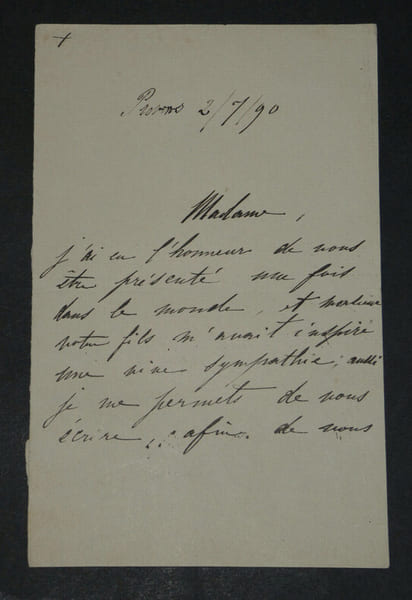 Provins 2/7/90
Madame,
j'ai eu l'honneur de vous
être présenté une fois
dans le monde, et monsieur
votre fils m'avait inspiré
une vive sympathie; aussi
je me permets de vous
écrire, afin de vous